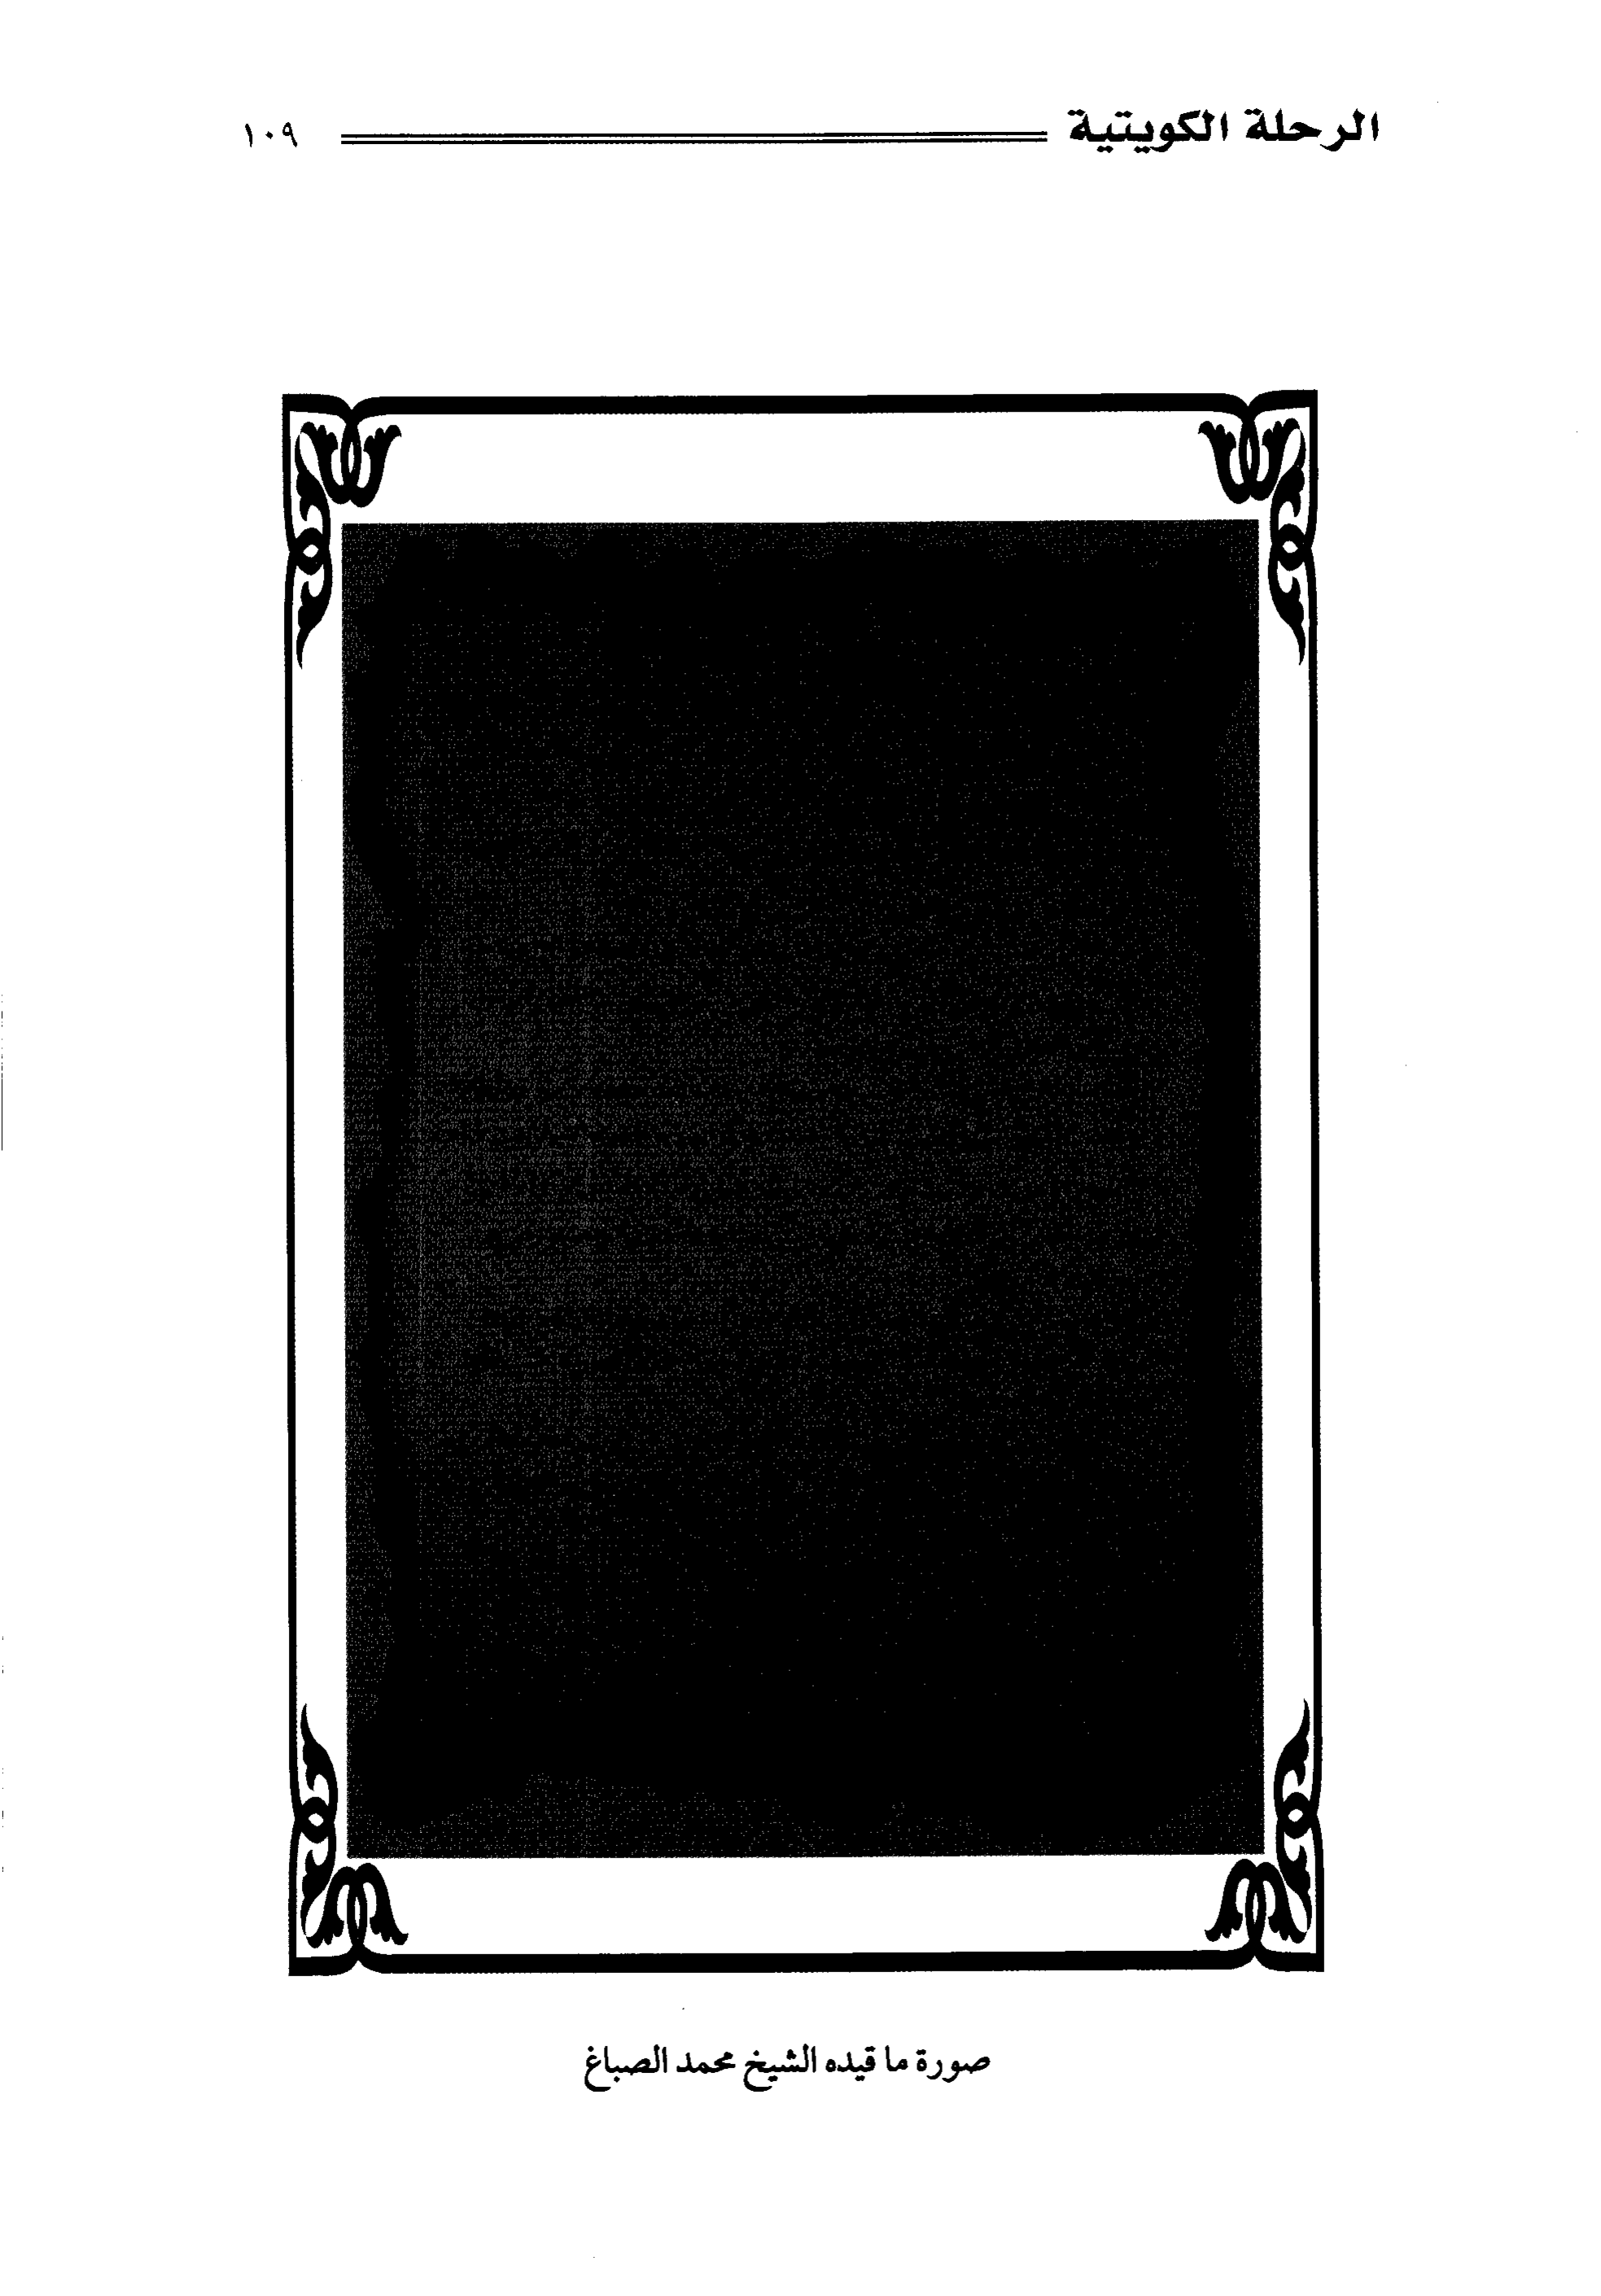 الرحلة الكويتية ١٠٩
صورة ما قيده الشيخ محمد الصباغ